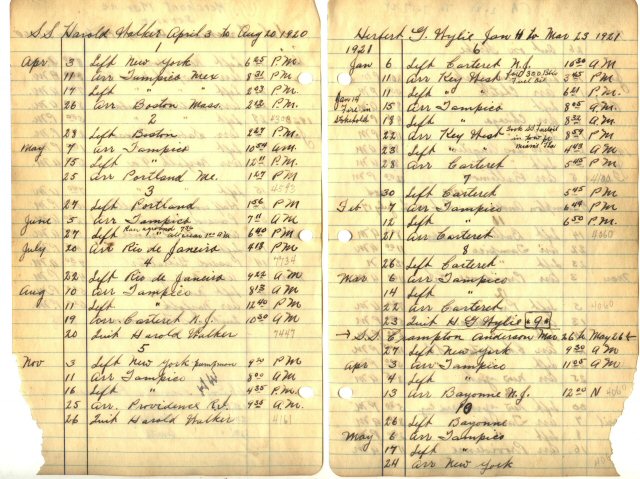 S.S. Harold Walker April 3 to Aug 20 1920
1
Apr 3 Left New York 6 45 P.M.
11 Arr Tampico Mex 8 31 P.M.
17 Left " 2 23 P.M.
26 Arr Boston Mass. 2 42 P.M.
2
28 Left Boston 2 27 P.M.
May 7 Arr Tampico 10 54 A.M.
15 Left " 12 11 P.M.
25 Arr Portland Me. 1 47 P.M.
4593
3
27 Left Portland 1 56 P.M.
June 5 Arr Tampico 7 11 A.M.
Ran aground 7th
27 Left " 6 40 P.M.
July 20 Arr Rio de Janeiro 4 18 P.M.
7734
4
22 Left Rio de Janeiro 9 22 A.M.
Aug 10 Arr Tampico 8 13 A.M.
11 Left " 12 40 P.M.
19 Arr Carteret N.J. 10 30 A.M.
20 Quit Harold Walker 7447
5
Nov 3 Left New York pumpman 9 20 P.M.
11 Arr Tampico 8 00 A.M.
16 Left " 4 35 P.M.
HW
25 Arr. Providence R.I. 9 35 A.M.
26 Quit Harold Walker 4161
Herbert G. Wylie Jan 4 to Mar 23 1921
1921 6
Jan 6 Left Carteret N.J. 10 30 A.M.
11 Arr Key West 3 45 P.M.
Fuel Oil
11 Left " " 6 21 P.M.
Jan 14 Fire in
15 Arr Tampico 8 05 A.M.
18 Left " 8 32 A.M.
22 Arr Key West 8 59 P.M.
in tow
23 Left " " 4 43 A.M.
28 Arr Carteret 5 45 P.M.
7
30 Left Carteret 5 45 P.M.
Feb 7 Arr Tampico 6 49 P.M.
12 Left " 6 50 P.M.
21 Arr Carteret 4060
8
26 Left Carteret
Mar 6 Arr Tampico
14 Left "
22 Arr Carteret 4060
23 Quit H G Wylie "9"
→ S.S. Crampton Anderson Mar 26 to May 26th
27 Left New York 9 30 A.M.
Apr 3 Arr Tampico 11 05 A.M.
4 Left "
13 Arr Bayonne N.J. 12 00 N 4060
10
26 Left Bayonne
May 6 Arr Tampico
17 Left "
24 Arr New York